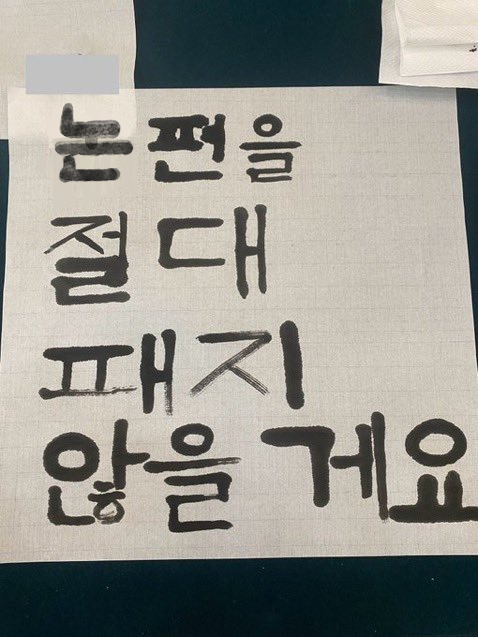 는 편을
절대
패지
않을 게요